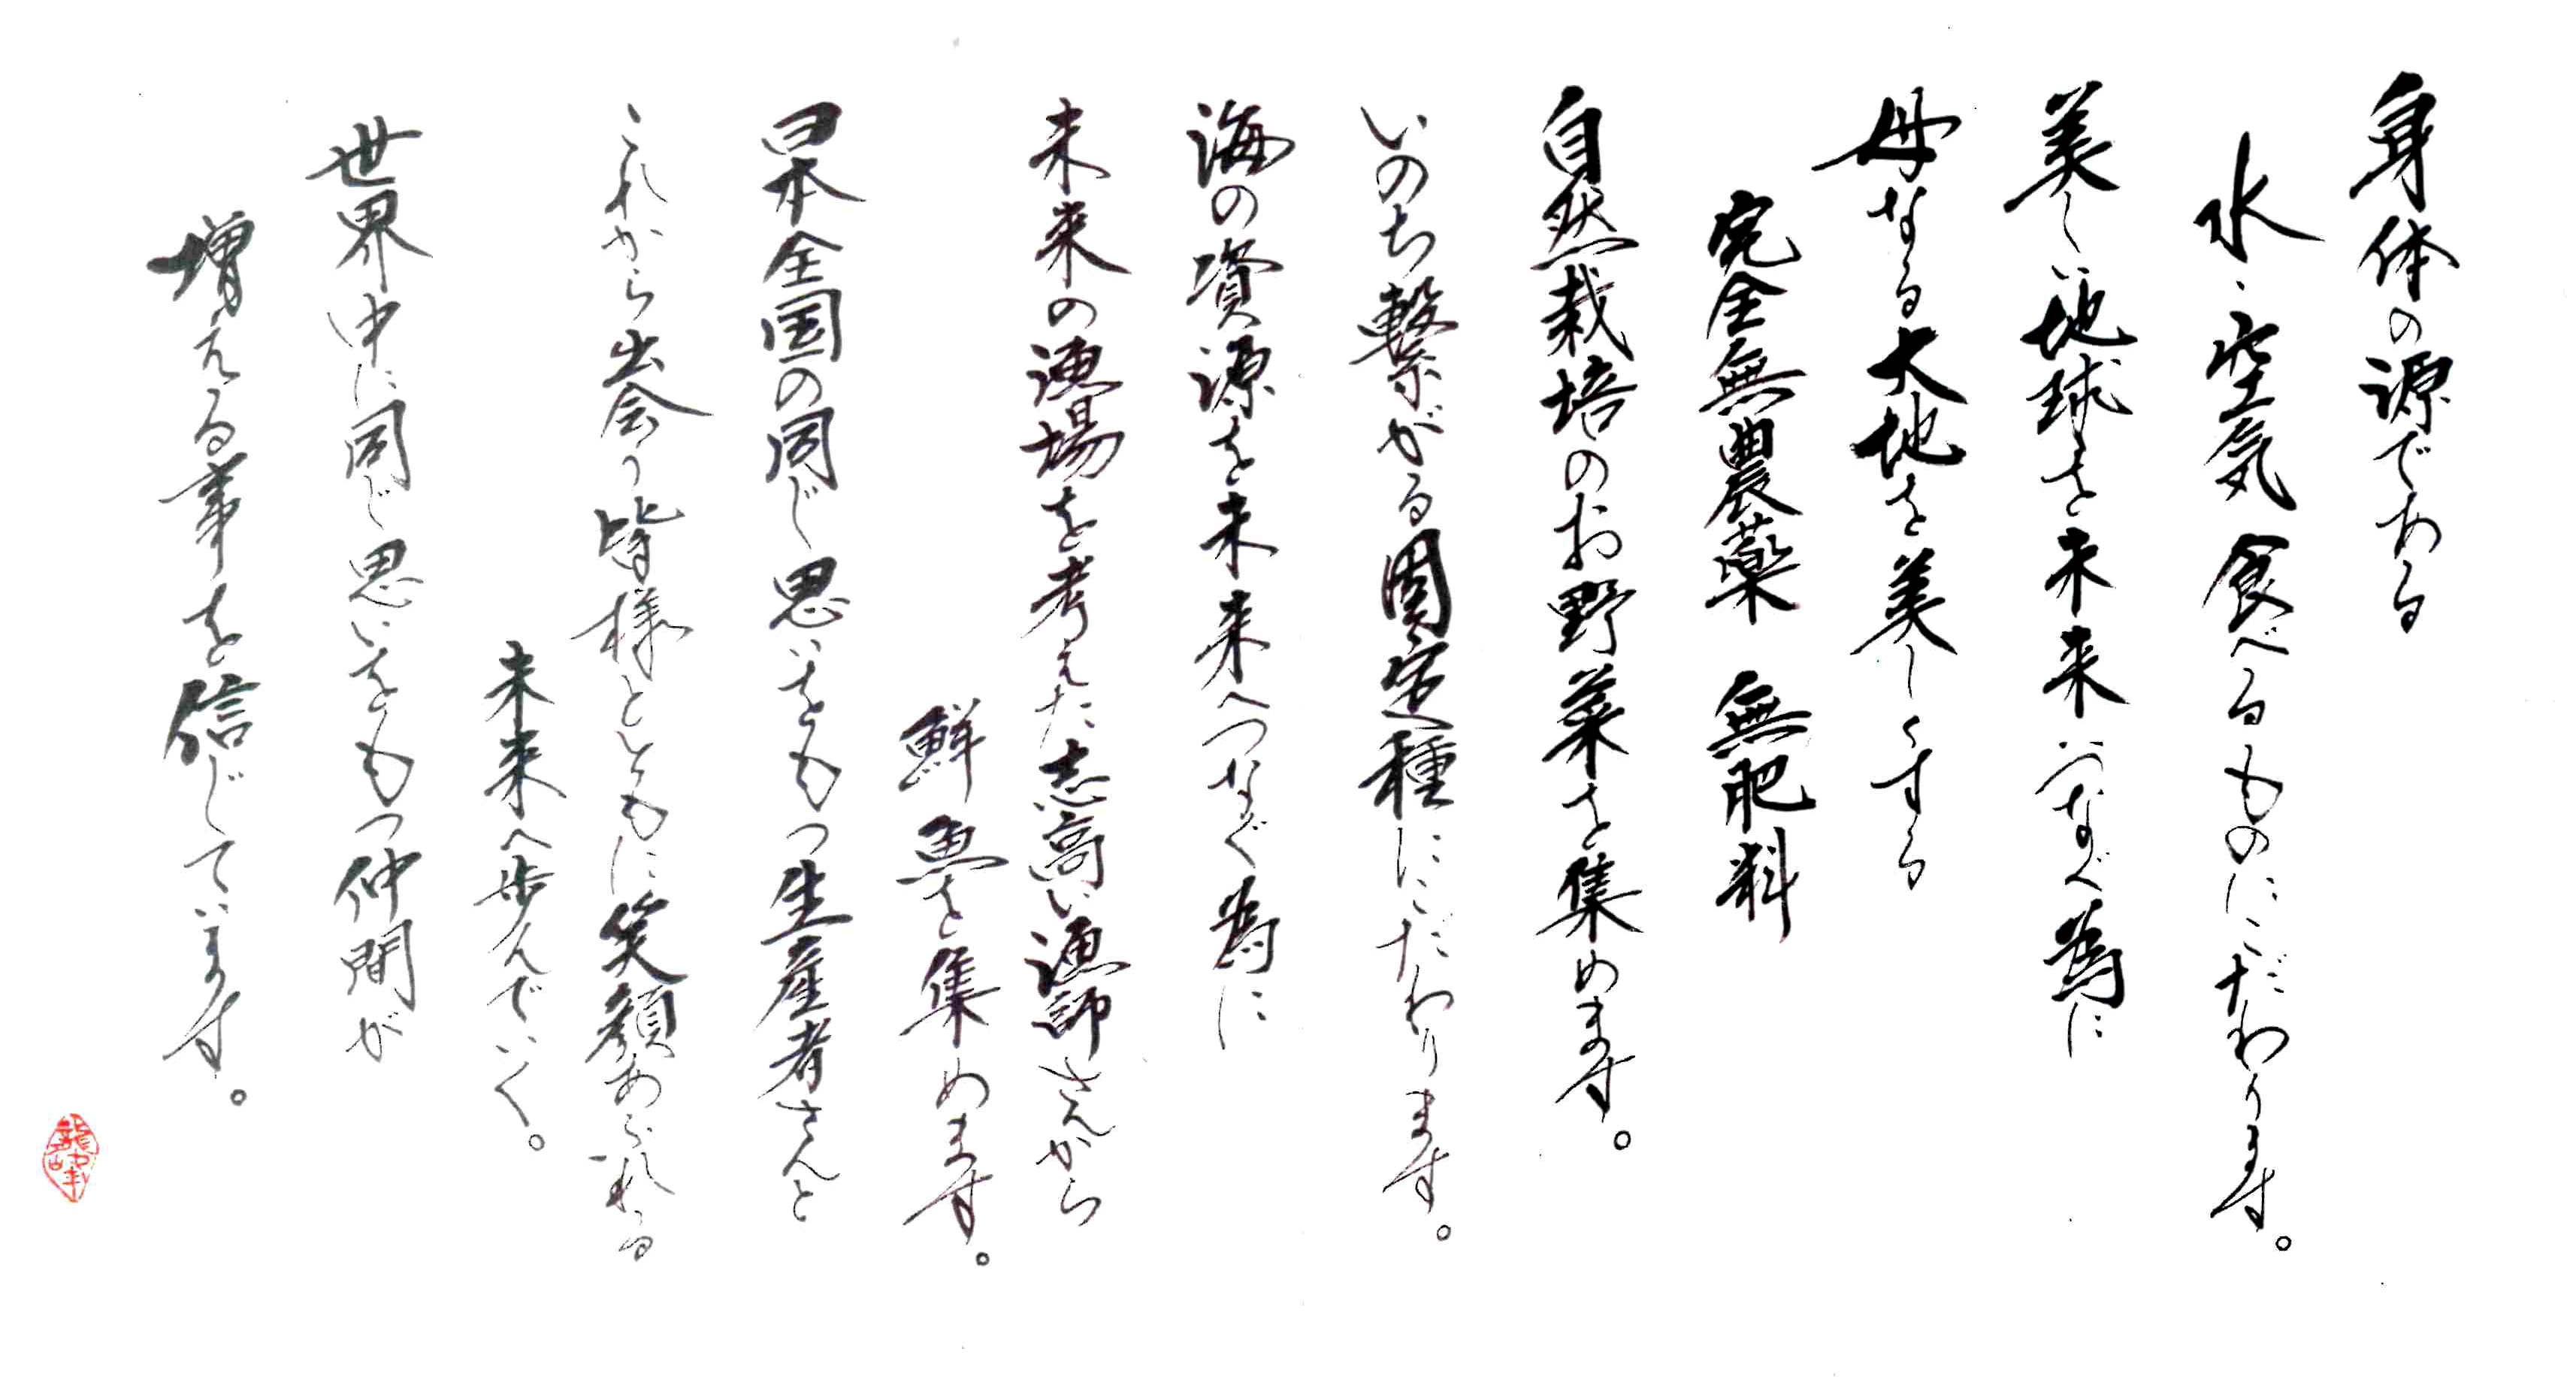 身体の源である
水、空気 食べるものにこだわります。
美しい地球を未来につなぐ為に
母なる大地を美しくする
完全無農薬 無肥料
自然栽培のお野菜を集めます。
いのち繋がる固定種にこだわります。
海の資源を未来へつなぐ為に
未来の漁場を考えた志高い漁師さんから
鮮魚を集めます。
日本全国の同じ思いをもつ生産者さんと
これから出会う皆様とともに笑顔あふれる
未来へ歩んでいく。
世界中に同じ思いをもつ仲間が
増える事を信じています。